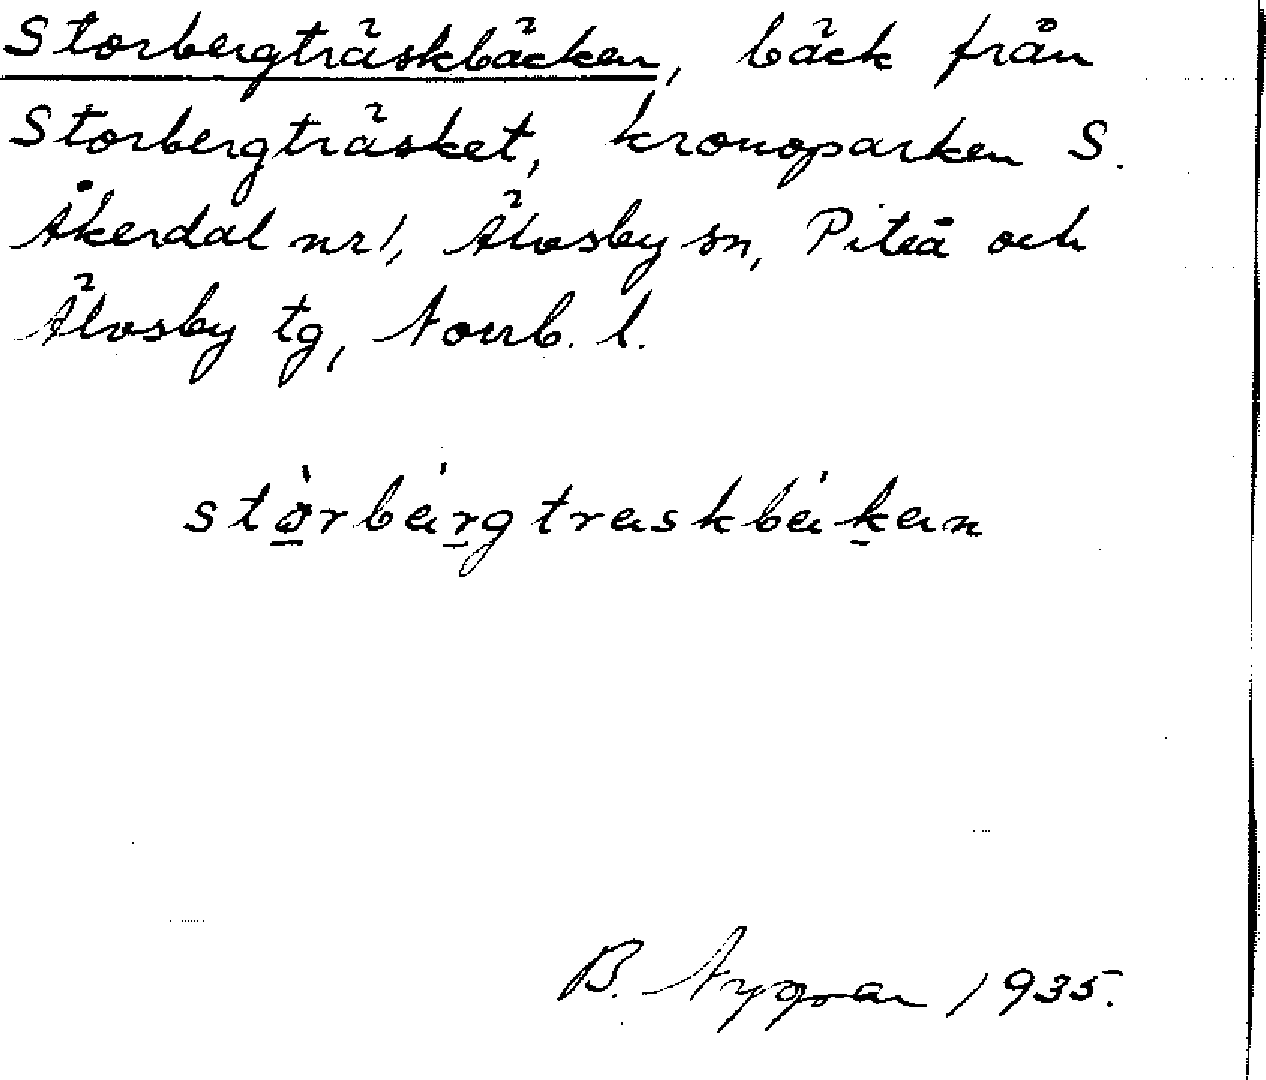 Storbergträskbäcken, bäck från
Storbergträsket, kronoparken S.
Åkerdal nr 1, Älvsby sn, Piteå och
Älvsby tg, Norrb. l.
störbärgträskbäkän
B. Nygren 1935.